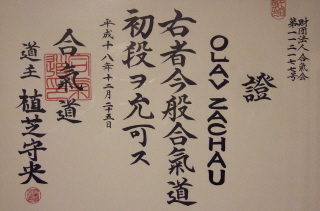 財団法人合氣会
第一一二一七七号
證
OLAV ZACHAU
右者今般合氣道
初段ヲ允可ス
平成十八年十二月二十五日
合氣道
道主 植芝守央